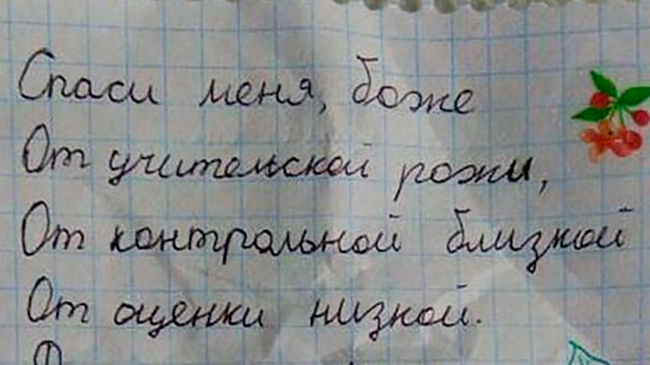 Спаси меня, боже
От учительской рожи,
От контрольной близкой
От оценки низкой.